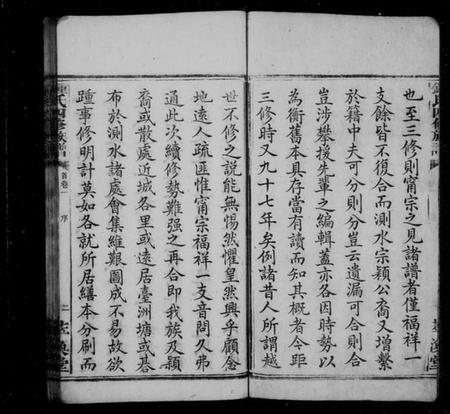 也至三修則甯宗之見諸譜者僅福祥一
支餘皆不復合而測水宗穎公裔又增繫
於籍中夫可分則分豈云遺漏可合則合
豈涉攀援先輩之編輯蓋亦各因時勢以
為衡舊本具存當有讀而知其概者今距
三修時又九十七年矣例諸昔人所謂越
世不修之說能無惕然懼皇然興乎顧念
地遠人疏匪惟甯宗福祥一支音問久弗
通此次續修勢難強之再合即我族及穎
裔或散處近城各里或遠居臺洲塘或碁
布於測水諸處會集維艱圖成不易故欲
踵事修明計莫如各就所居繕本分刷而
氏四修族譜
首卷一
序
二